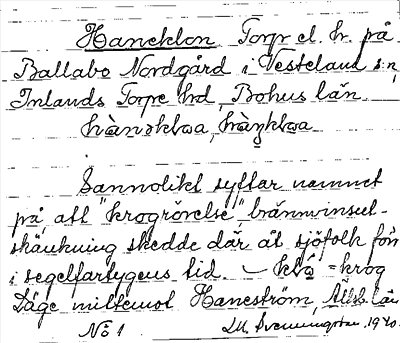 Haneklon Torp el. h. på
Ballabo Nordgård i Vesteland s:n,
Inlands Torpe hd, Bohus län.
hànəklωa, hàŋklωa
Sannolikt syftar namnet
på att "krogrörelse", brännvinsut-
skänkning skedde där åt sjöfolk förr
i segelfartygens tid. – klå = krog
Läge mittemot Haneström, Älvsb. län
No 1 D. Svenningson. 1940.